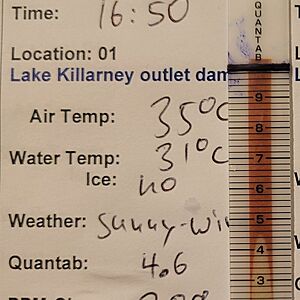 Time: 16:50
QUANTAB
Location: 01
Lake Killarney outlet dam
Air Temp: 35°C
Water Temp: 31°C
Ice: no
Weather: Sunny-Wi
Quantab: 4.6
9
8
7
6
5
4
3